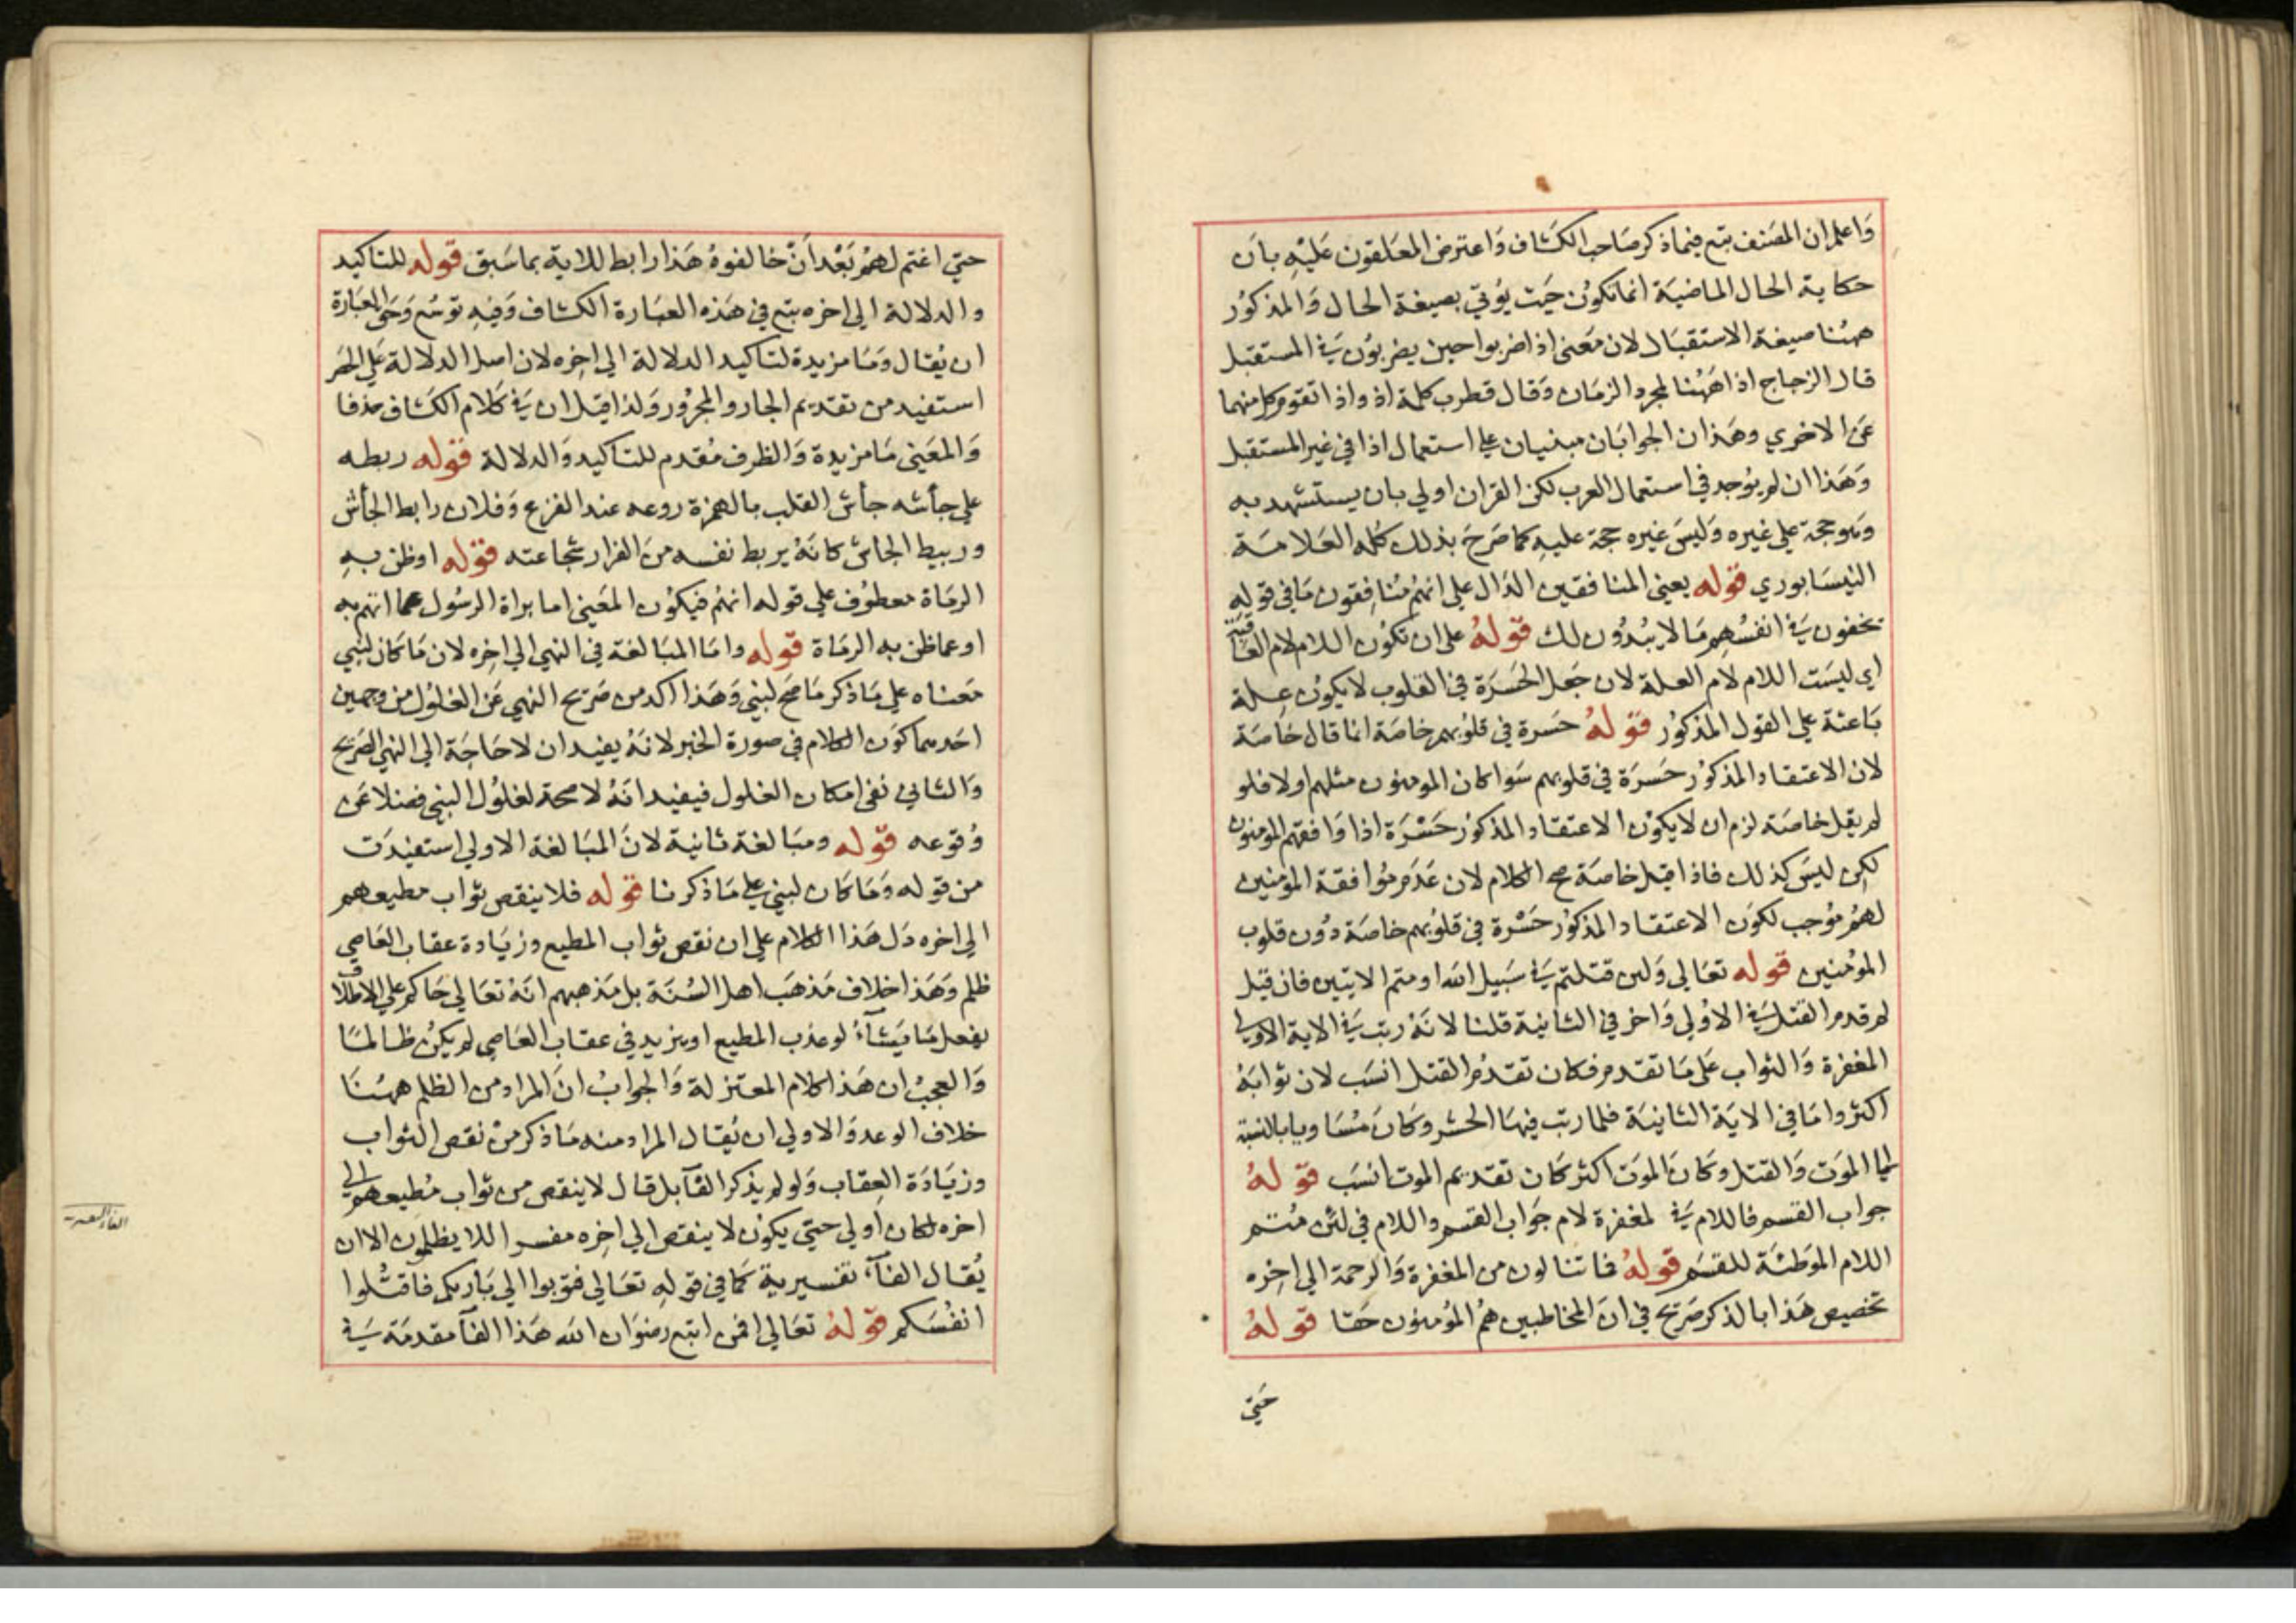 وَاعلم ان المصَنف تبع فيما ذكر صَاحب الكشاف وَاعترض المعَلقون عَليْهِ بانَ
حكاية الحال الماضيَة انما تكوُن حَيث يُؤتى بصيغة الحال وَالمذكوُر
ههُنا صيغة الاستقبَال لان مَعنى اذا ضربوا حين يضربوُن في المستقبل
قال الزجاج اذا ههُنا لمجرد الزمَان وَقال قطرب كلمة اذ واذا تقوم كل منهما
عَن الاخري وهَذان الجوابَان مبنيان علي استعمال اذا في غير المستقبل
وَهَذا ان لم يوُجد في استعمال العرب لكن القران اولي بان يستشهد به
وَهوحجة علي غيره وَليسَ غيره حجة عليه كما صَرحَ بذلك كله العَلامَة
النيسَابوري قوله يعني المنافقين الدَال علي انهمُ مُنافِقون مَا في قوله
يخفون في انفسُهِم مَا لا يُبدُون لك قولهُ على ان تكوُن اللام لام العاقبَة
اي ليسَت اللام لام العلة لان جَعل الحَسَرة في القلوب لا يكوُن عِلة
بَاعثة علي القول المذكوُر قولهُ حَسرة في قلوُبهم خاصَة انما قال خاصَة
لان الاعتقاد المذكوُر حَسرَة في قلوبهم سَوا كان المومنوُن مثلهم اولا فلو
لم يقل خاصَة لزم ان لا يكوُن الاعتقاد المذكوُر حَسْرَة اذا وَافقهم المومنون
لكن ليسَ كذلك فاذا قيل خاصَة صح الكلام لان عَدَم موُافقة المؤمنين
لهمُ موُجب لكوَن الاعتقاد المذكوُر حَسْرة في قلوُبهم خاصَة دوُن قلوب
الموُمنين قوله تعَالي وَلين قتلتم في سَبيل الله اومتم الايتين فان قيل
لم قدم القتل في الاوُلي وَاخر في الثانية قلنا لانهُ رتب في الاية الاولي
المغفرة وَالثواب عَلى مَا تقدم فكان تقدمُ القتل انسَب لان ثوابَهُ
اكثر وامَا في الايَة الثانيَة فلما رتب فيهَا الحشر وكانَ مُسَاويا بالنسبة
الي الموَت وَالقتل وكانَ الموَت اكثر كان تقديم الموت انسَب قولهُ
جواب القسم فاللام في لمغفرة لام جوَاب القسم واللام في لئن مُتم
اللام الموَطئة للقسَم قولهُ فاتنالون من المغفرة وَالرحمة الي اخِره
تخصيص هَذا بالذكر صَريح في انَ المخاطبين همُ الموُمنوُن حَقا قولهُ
حَتي
حتي اغتم لهمُ بَعْدَ انْ خالفوهُ هَذا رابط للاية بما سَبق قوله للتاكيد
والدلالة الي اخره تبع في هَذه العبَارة الكشاف وَفيهِ توسُع وَحَق العبَارة
ان يُقال وَمَا مزيدة لتاكيد الدلالة الي اخِره لان اصل الدلالة عَلي الحَصر
استفيد من تقديم الجار والمجرُور وَلذا قيل ان في كلام الكشاف حذفا
وَالمعَني مَا مزيدة وَالظرف مُقدم للتاكيد وَالدلالة قوله ربطه
علي جأشه جأش القلب بالهمزة روعه عند الفزع وَفلان رابط الجأش
وربيط الجاش كانهُ يربط نفسه منَ الفرار بشجاعته قوله اوظن بهِ
الرمَاة معطوُف علي قوله انهمُ فيكوُن المعَني اما براة الرسُول عما اتهم به
اوعما ظن به الرمَاة قوله وامَا المبَالغة في النهي الي اخره لان مَا كان لنبي
مَعناه علي مَا ذكر مَا صَح لنبي وَهَذا اكد من صَريح النهي عَن الغلوُل من وجهين
احَدهما كوَن الكلام في صورة الخبر لانهُ يفيد ان لا حَاجَة الي النهي الصَريح
وَالثاني نفي امكان الغلول فيفيد انهُ لا صحة لغلوُل النبي فضلا عَن
وُقوعه قوله ومبَالغة ثانية لانَ المبَالغة الاولي استفيدَت
من قوله وَمَا كان لنبي علي مَا ذكرنا قوله فلا ينقص ثواب مطيعهم
الي اخره دَل هَذا الكلام علي ان نقص ثواب المطيع وزيَادة عقاب العَاصي
ظلم وَهَذا خلاف مَذهَب اهل السُنة بل مَذهبهم انهُ تعَالي حَاكم علي الاطلاق
يفعل مَا يَشآءُ لو عذب المطيع اويزيد في عقاب العَاصي لم يكنُ ظالمًا
وَالعجبُ ان هَذا كلام المعتزلة وَالجوابُ انَ المراد من الظلم ههُنا
خلاف الوعد وَالاولي ان يُقال المراد منه مَا ذكر منْ نقص الثواب
وزيَادَة العِقاب وَلو لم يذكر الفآ بل قال لا ينقص من ثواب مُطيعهم الي
اخره لكان أولي حتي يكوُن لا ينقص الي اخِره مفسرا للا يظلموُن الا ان
يُقال الفآءُ تفسيرية كما في قولهِ تعَالي فتوبوا الي بَاريكم فاقتلُوا
انفسَكم قولهُ تعَالي افمن اتبع رضوَان الله هَذا الفآ مقدمَة في